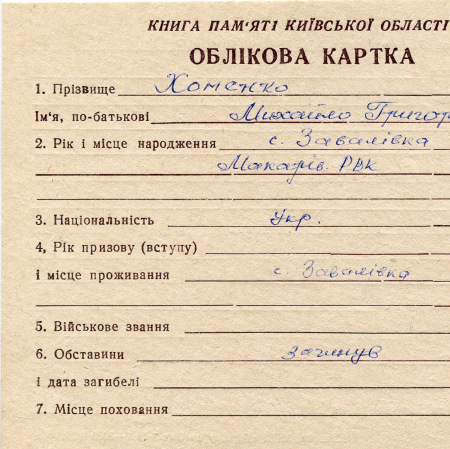 КНИГА ПАМ'ЯТІ КИЇВСЬКОЇ ОБЛАСТІ
ОБЛІКОВА КАРТКА
1. Прізвище Хоменко
Ім'я, по-батькові Михайло Григор
2. Рік і місце народження с. Завалівка
Макарів. РВК
3. Національність Укр.
4, Рік призову (вступу)
і місце проживання с. Завалівка
5. Військове звання
6. Обставини загинув
і дата загибелі
7. Місце поховання